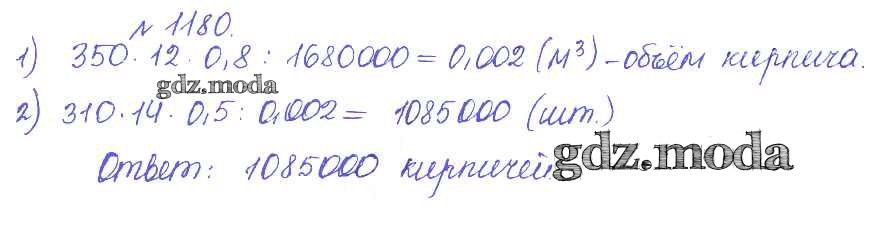 № 1180.
1) 350·12·0,8 : 1680000 = 0,002 (м³) – объём кирпича.
gdz.moda
2) 310·14·0,5 : 0,002 = 1085000 (шт.)
Ответ: 1085000 кирпичей.
gdz.moda